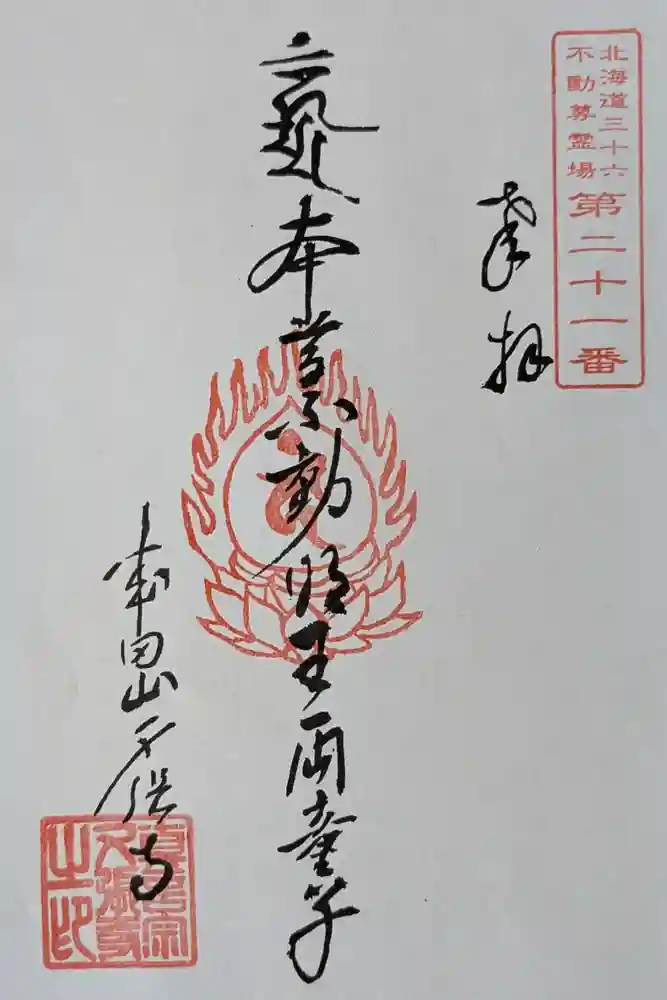 北海道三十六
不動尊霊場
第二十一番
奉拝
本尊不動明王両童子
成田山
寺
真言宗
之印